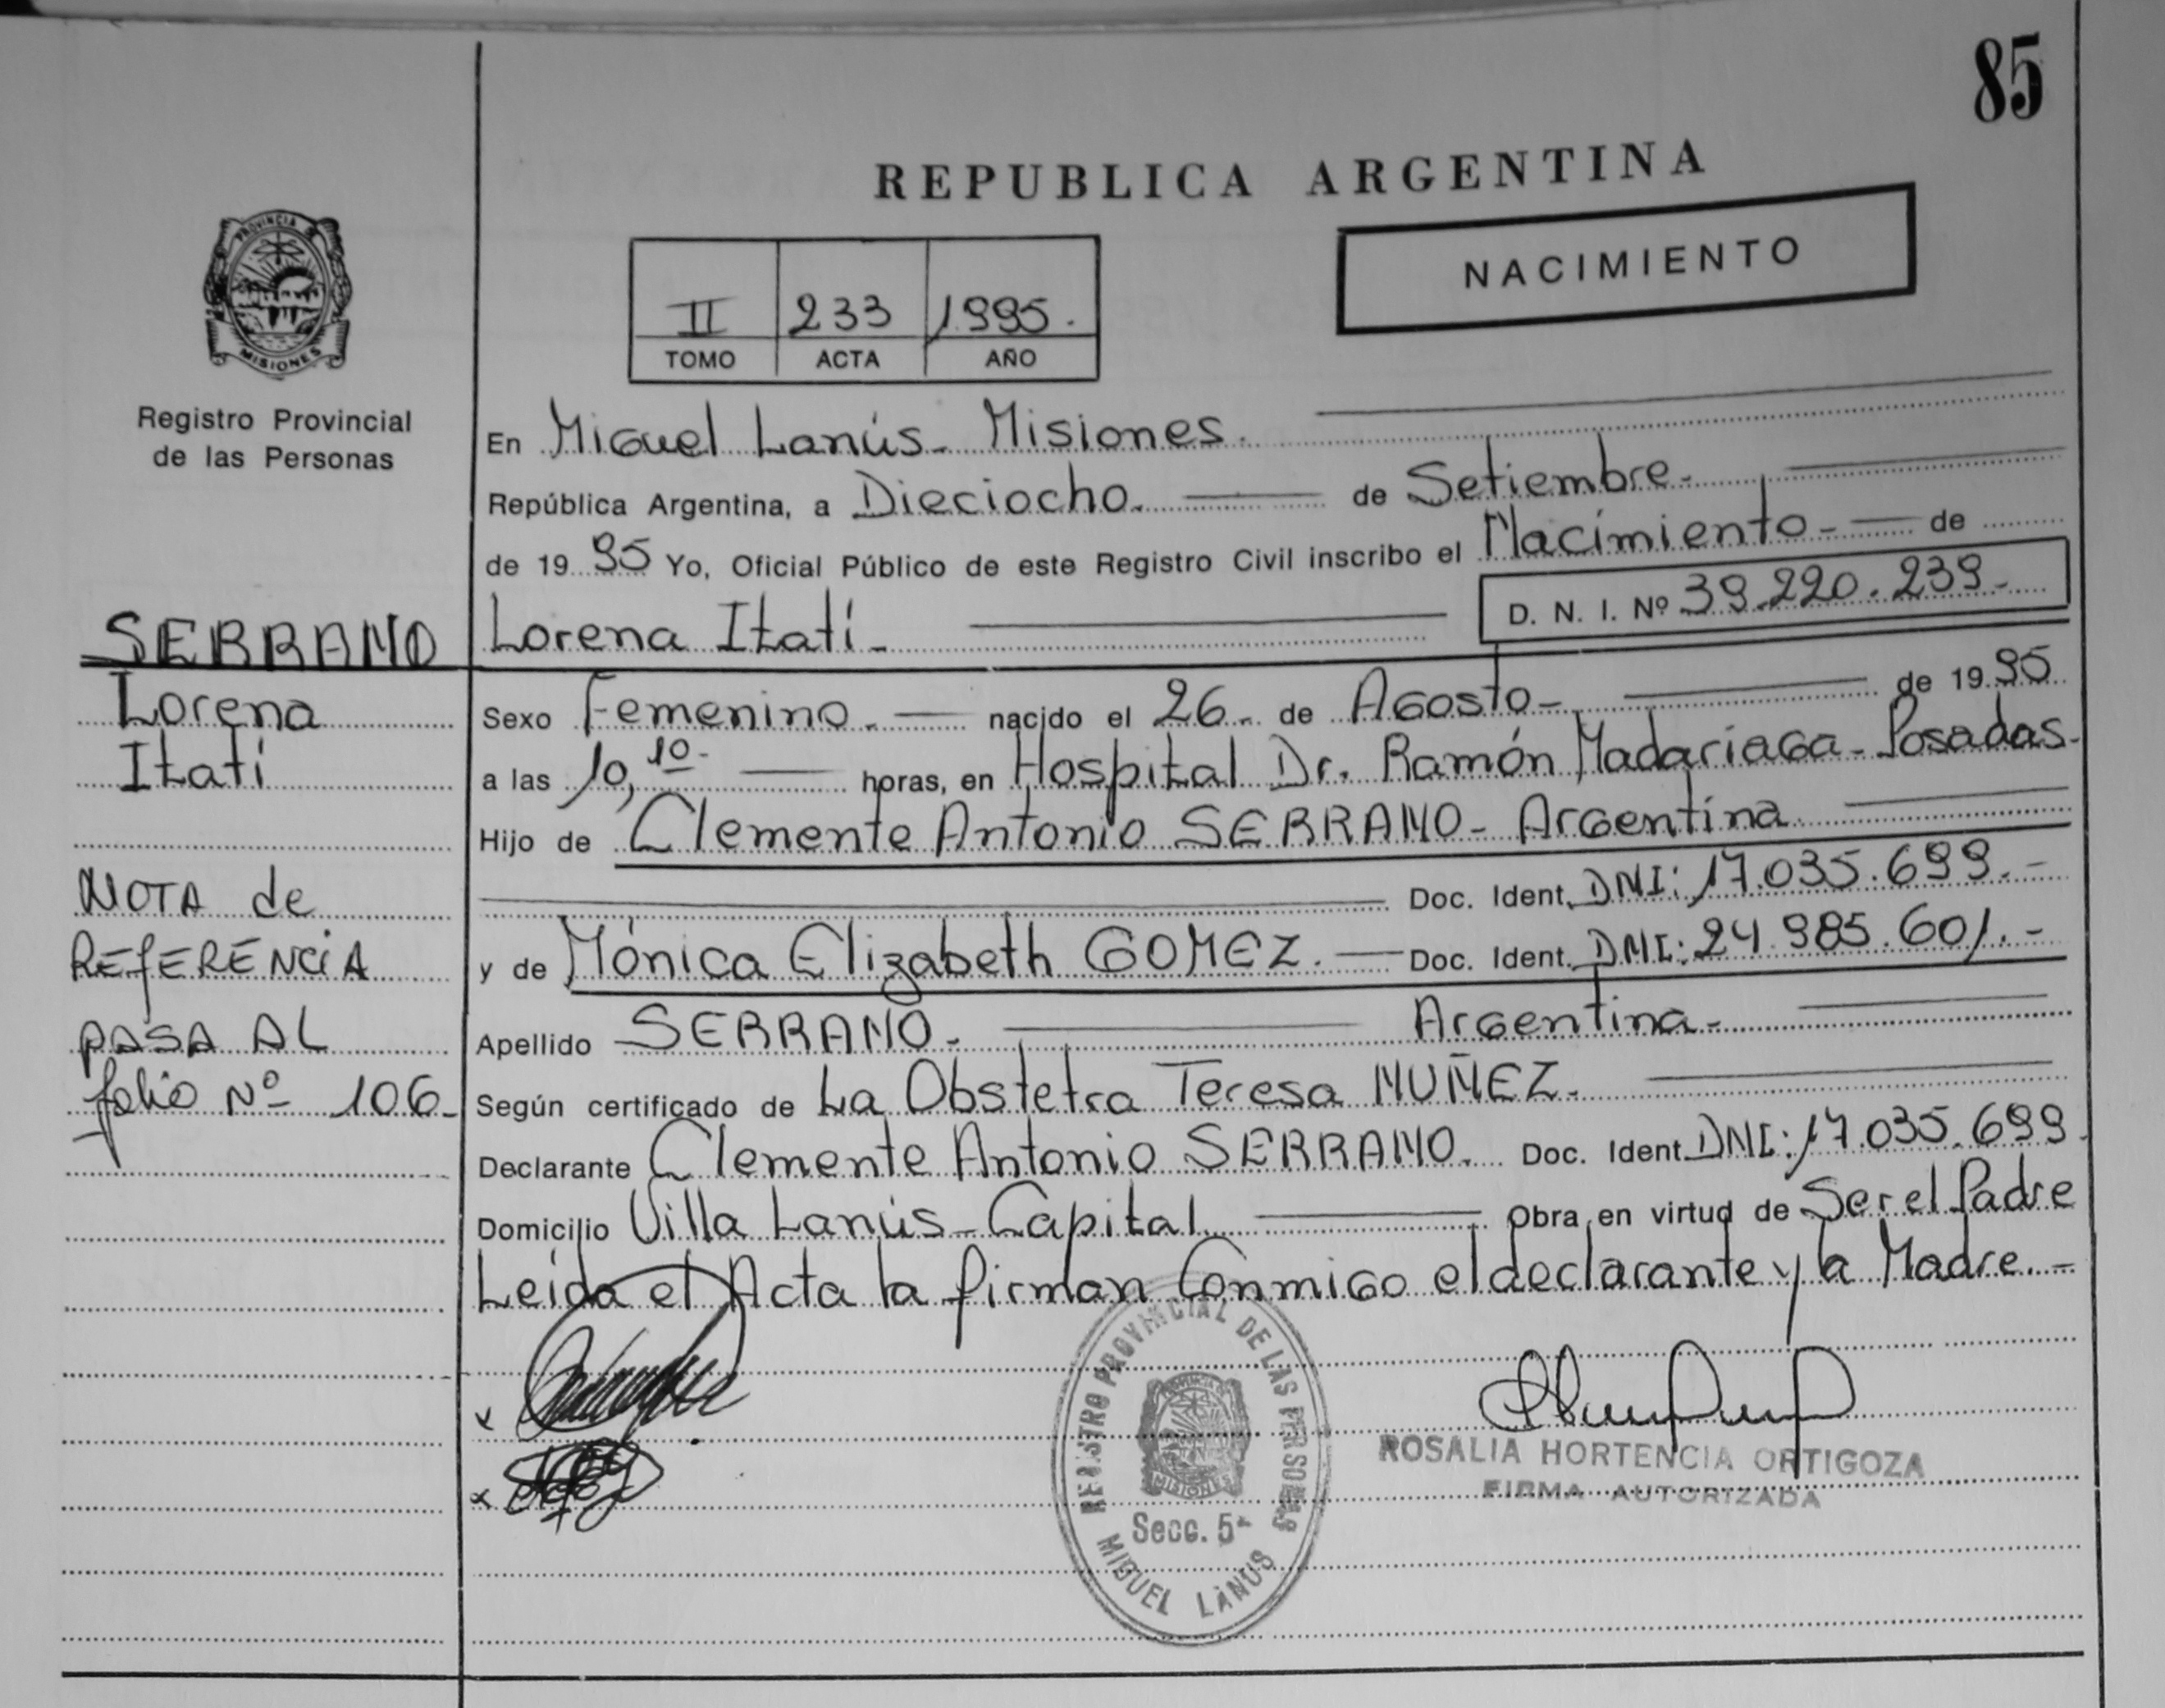 85
REPUBLICA ARGENTINA
NACIMIENTO
II 233 1995.
TOMO ACTA AÑO
PROVINCIA DE
MISIONES
Registro Provincial
de las Personas
En Miguel Lanús - Misiones.
República Argentina, a Dieciocho. de Setiembre.
de 19 95 Yo, Oficial Público de este Registro Civil inscribo el Nacimiento - de
D. N. I. Nº 39.220.239.-
Lorena Itatí -
Sexo Femenino. nacido el 26. de Agosto - de 19 95
a las 10,10- horas, en Hospital Dr. Ramón Madariaga - Posadas -
Hijo de Clemente Antonio SERRANO - Argentina.
Doc. Ident. DNI: 17.035.699.-
y de Mónica Elizabeth GOMEZ. Doc. Ident. DNI: 24.985.601.-
Apellido SERRANO. Argentina -
Según certificado de La Obstetra Teresa NUÑEZ.
Declarante Clemente Antonio SERRANO. Doc. Ident DNI: 17.035.699
Domicilio Villa Lanús - Capital Obra en virtud de Ser el Padre
Leída el Acta la firman Conmigo el declarante y la Madre. -
SERRANO
Lorena
Itatí
NOTA de
REfERENCiA
PASA AL
folio Nº 106 -
x
x
REGISTRO PROVINCIAL DE LAS PERSONAS
PROVINCIA DE
MISIONES
Secc. 5ª
MIGUEL LANUS
ROSALIA HORTENCIA ORTIGOZA
FIRMA AUTORIZADA